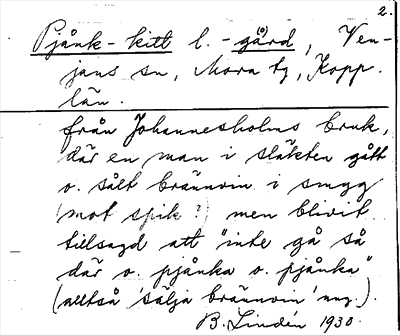 2.
Pjånk-kitt l. -gård, Ven-
jans sn, Mora tg, Kopp.
län.
från Johannesholms bruk,
där en man i släkten gått
o. sålt brännvin i smyg
(mot spik?) men blivit
tillsagd att "inte gå så
där o. pjånka o. pjånka"
(alltså 'sälja brännvin' ung.).
B. Lindén 1930.